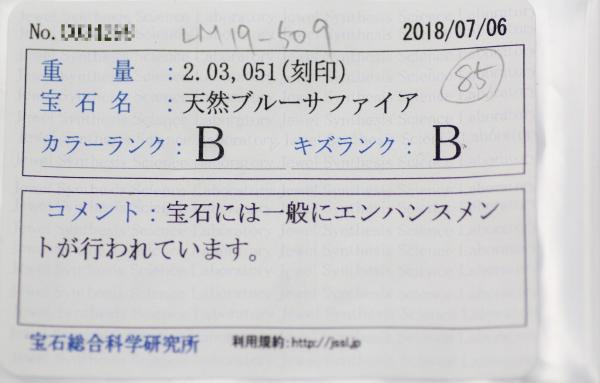 No. LM19-509 2018/07/06
重 量 : 2.03,051(刻印)
85
宝 石 名 : 天然ブルーサファイア
カラーランク : B キズランク : B
コメント : 宝石には一般にエンハンスメン
トが行われています。
宝石総合科学研究所 利用規約:http://jssl.jp